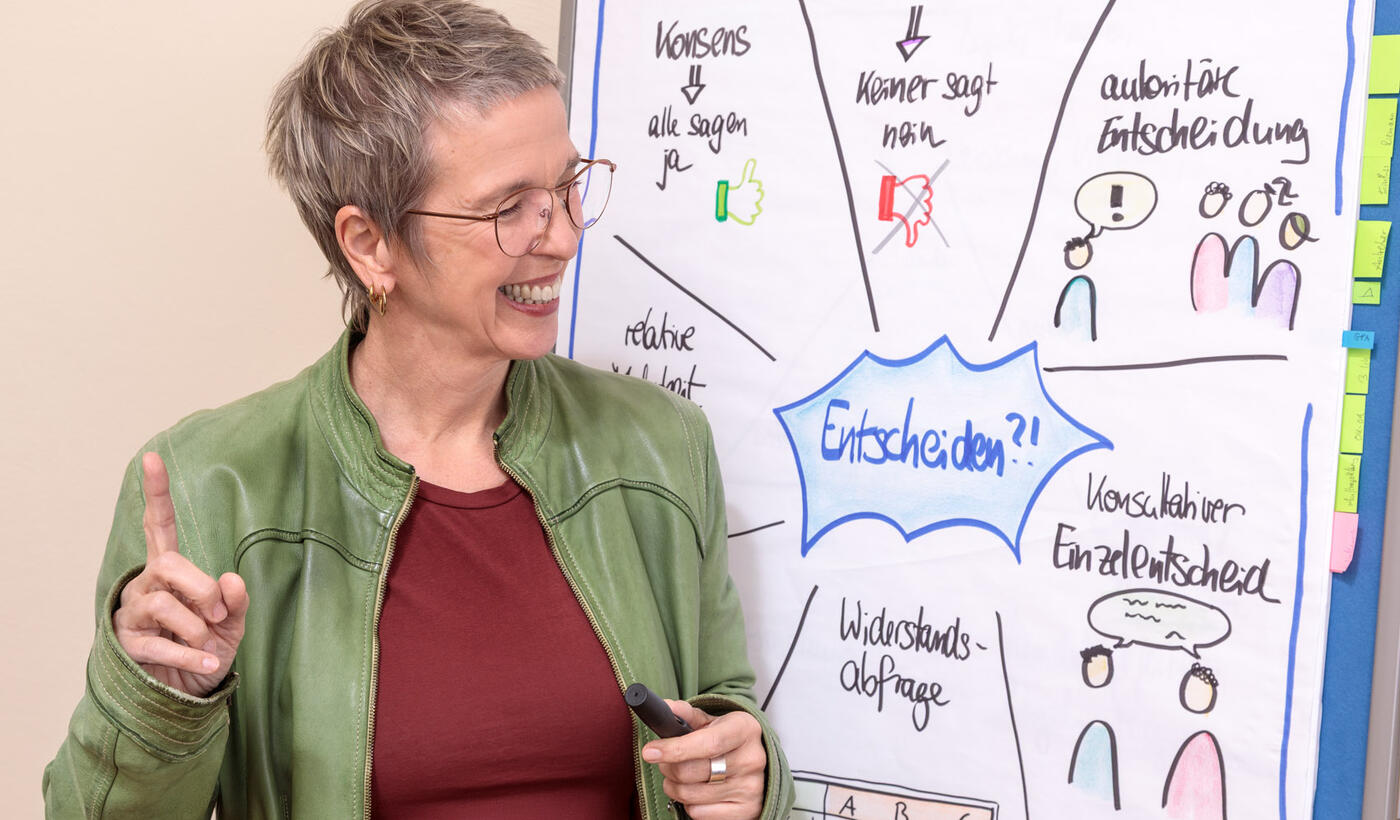 Konsens
alle sagen
ja
Keiner sagt
nein
autoritäre
Entscheidung
!
relative
Entscheiden?!
Konsultativer
Einzelentscheid
Widerstands-
abfrage
A B C